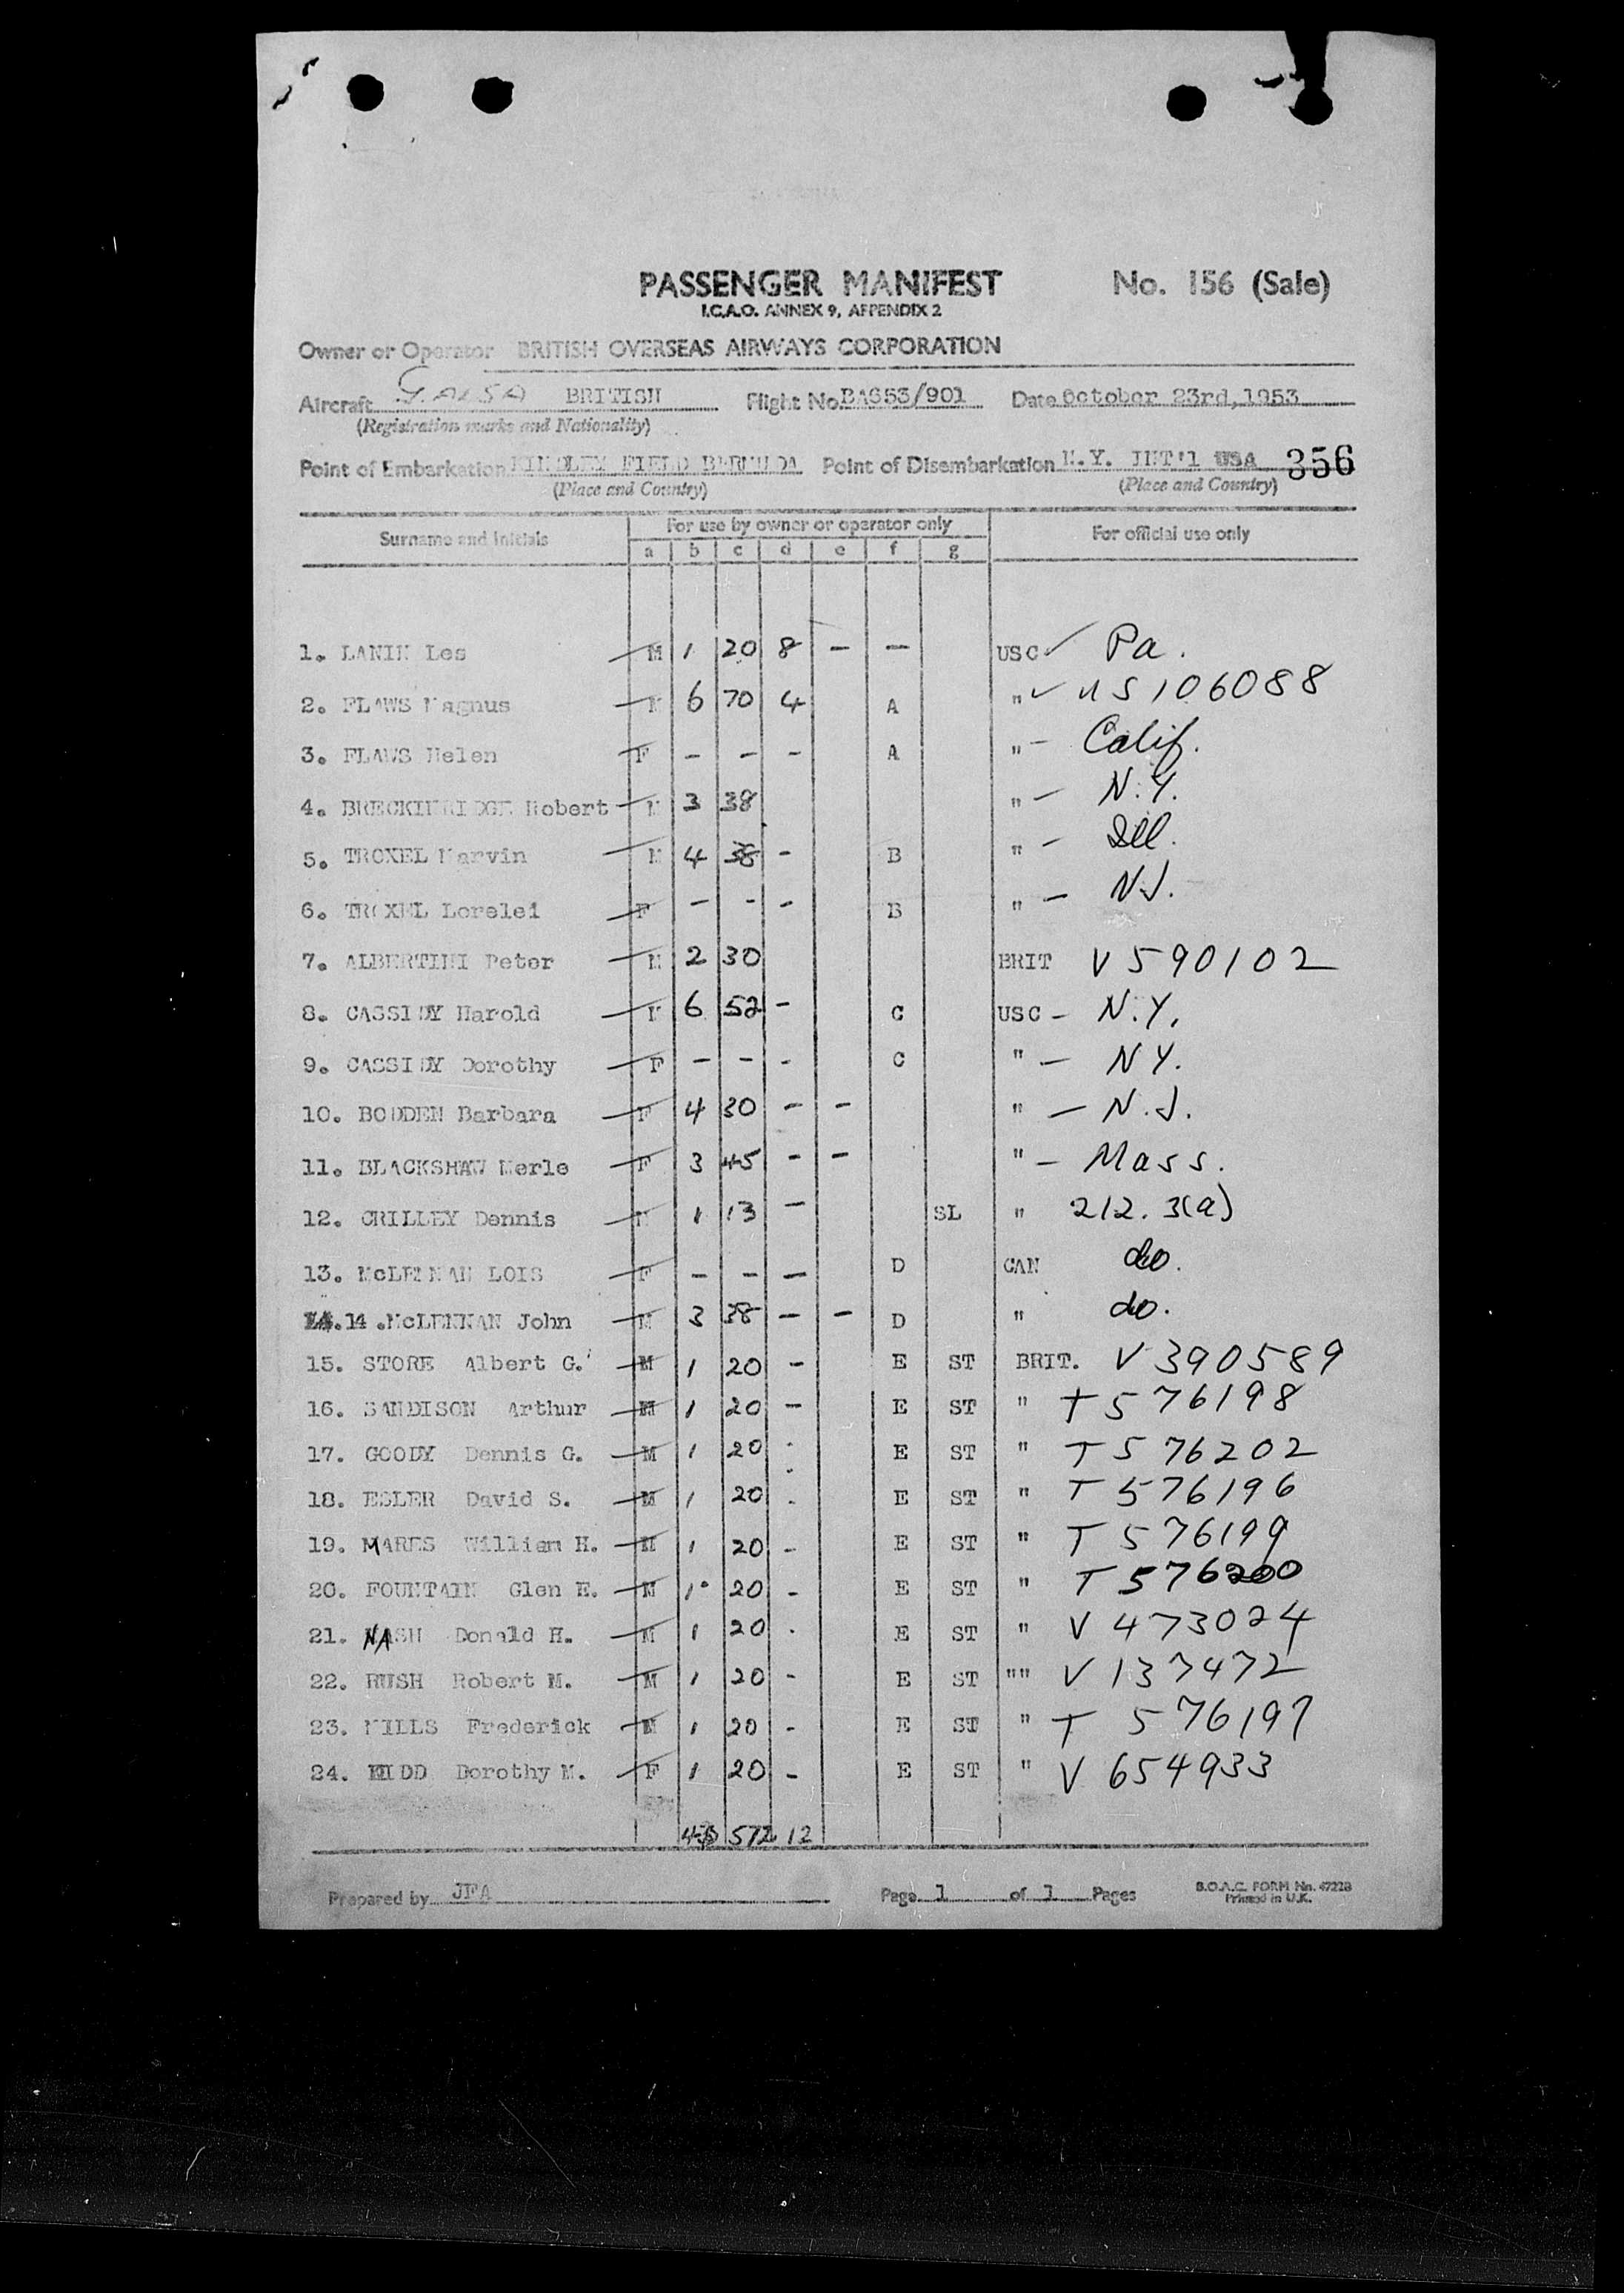 PASSENGER MANIFEST No. 156 (Sale)
I.C.A.O. ANNEX 9, APPENDIX 2
Owner or Operator BRITISH OVERSEAS AIRWAYS CORPORATION
Aircraft G.ALSA BRITISH Flight No. BA653/901 Date October 23rd, 1953
(Registration marks and Nationality)
Point of Embarkation KINDLEY FIELD BERMUDA Point of Disembarkation N.Y. INT'l USA 356
(Place and Country) (Place and Country)
Surname and Initials For use by owner or operator only For official use only
a b c d e f g
1. LANIN Les M 1 20 8 - - USC ✓ Pa.
2. FLAWS Magnus M 6 70 4 A " ✓ US 106088
3. FLAWS Helen F - - - A " - Calif.
4. BRECKINRIDGE Robert M 3 38 " - N.Y.
5. TROXEL Marvin M 4 38 - B " - Ill.
6. TROXEL Lorelei F - - - B " - N.J.
7. ALBERTINI Peter M 2 30 BRIT V 590102
8. CASSIDY Harold M 6 52 - C USC - N.Y.
9. CASSIDY Dorothy F - - - C " - NY.
10. BODDEN Barbara F 4 30 - - " - N.J.
11. BLACKSHAW Merle F 3 45 - - " - Mass.
12. CRILLEY Dennis M 1 13 - SL " 212.3(a)
13. McLENNAN LOIS F - - - D CAN do.
14. McLENNAN John M 3 38 - - D " do.
15. STORE Albert G. M 1 20 - E ST BRIT. V 390589
16. SANDISON Arthur M 1 20 - E ST " T 576198
17. GOODY Dennis G. M 1 20 - E ST " T 576202
18. ESLER David S. M 1 20 - E ST " T 576196
19. MARES William H. M 1 20 - E ST " T 576199
20. FOUNTAIN Glen E. M 1 20 - E ST " T 576200
21. NASH Donald H. M 1 20 - E ST " V 473024
22. RUSH Robert M. M 1 20 - E ST "" V 137472
23. MILLS Frederick M 1 20 - E ST " T 576197
24. KIDD Dorothy M. F 1 20 - E ST " V 654933
572 12
Prepared by JFA Page 1 of 1 Pages B.O.A.C. FORM No. 4722B
Printed in U.K.